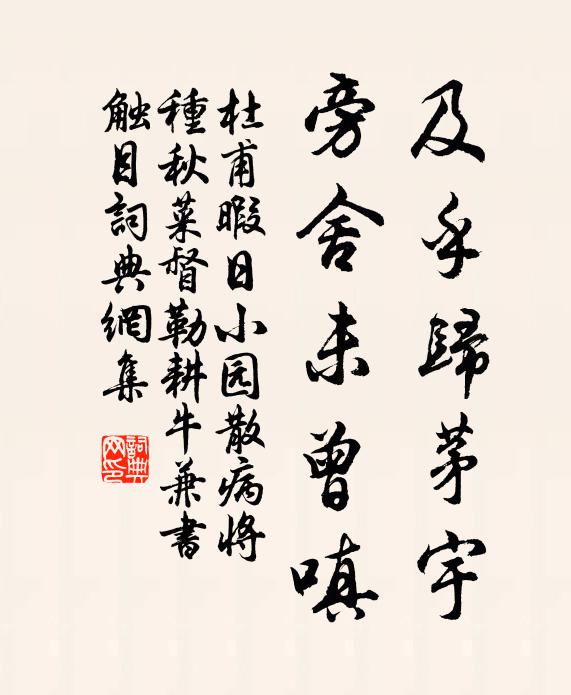 及乎歸茅宇
旁舍未曾嗔
杜甫暇日小园散病将
種秋菜督勒耕牛兼書
触目詞典網集
詞典
网印